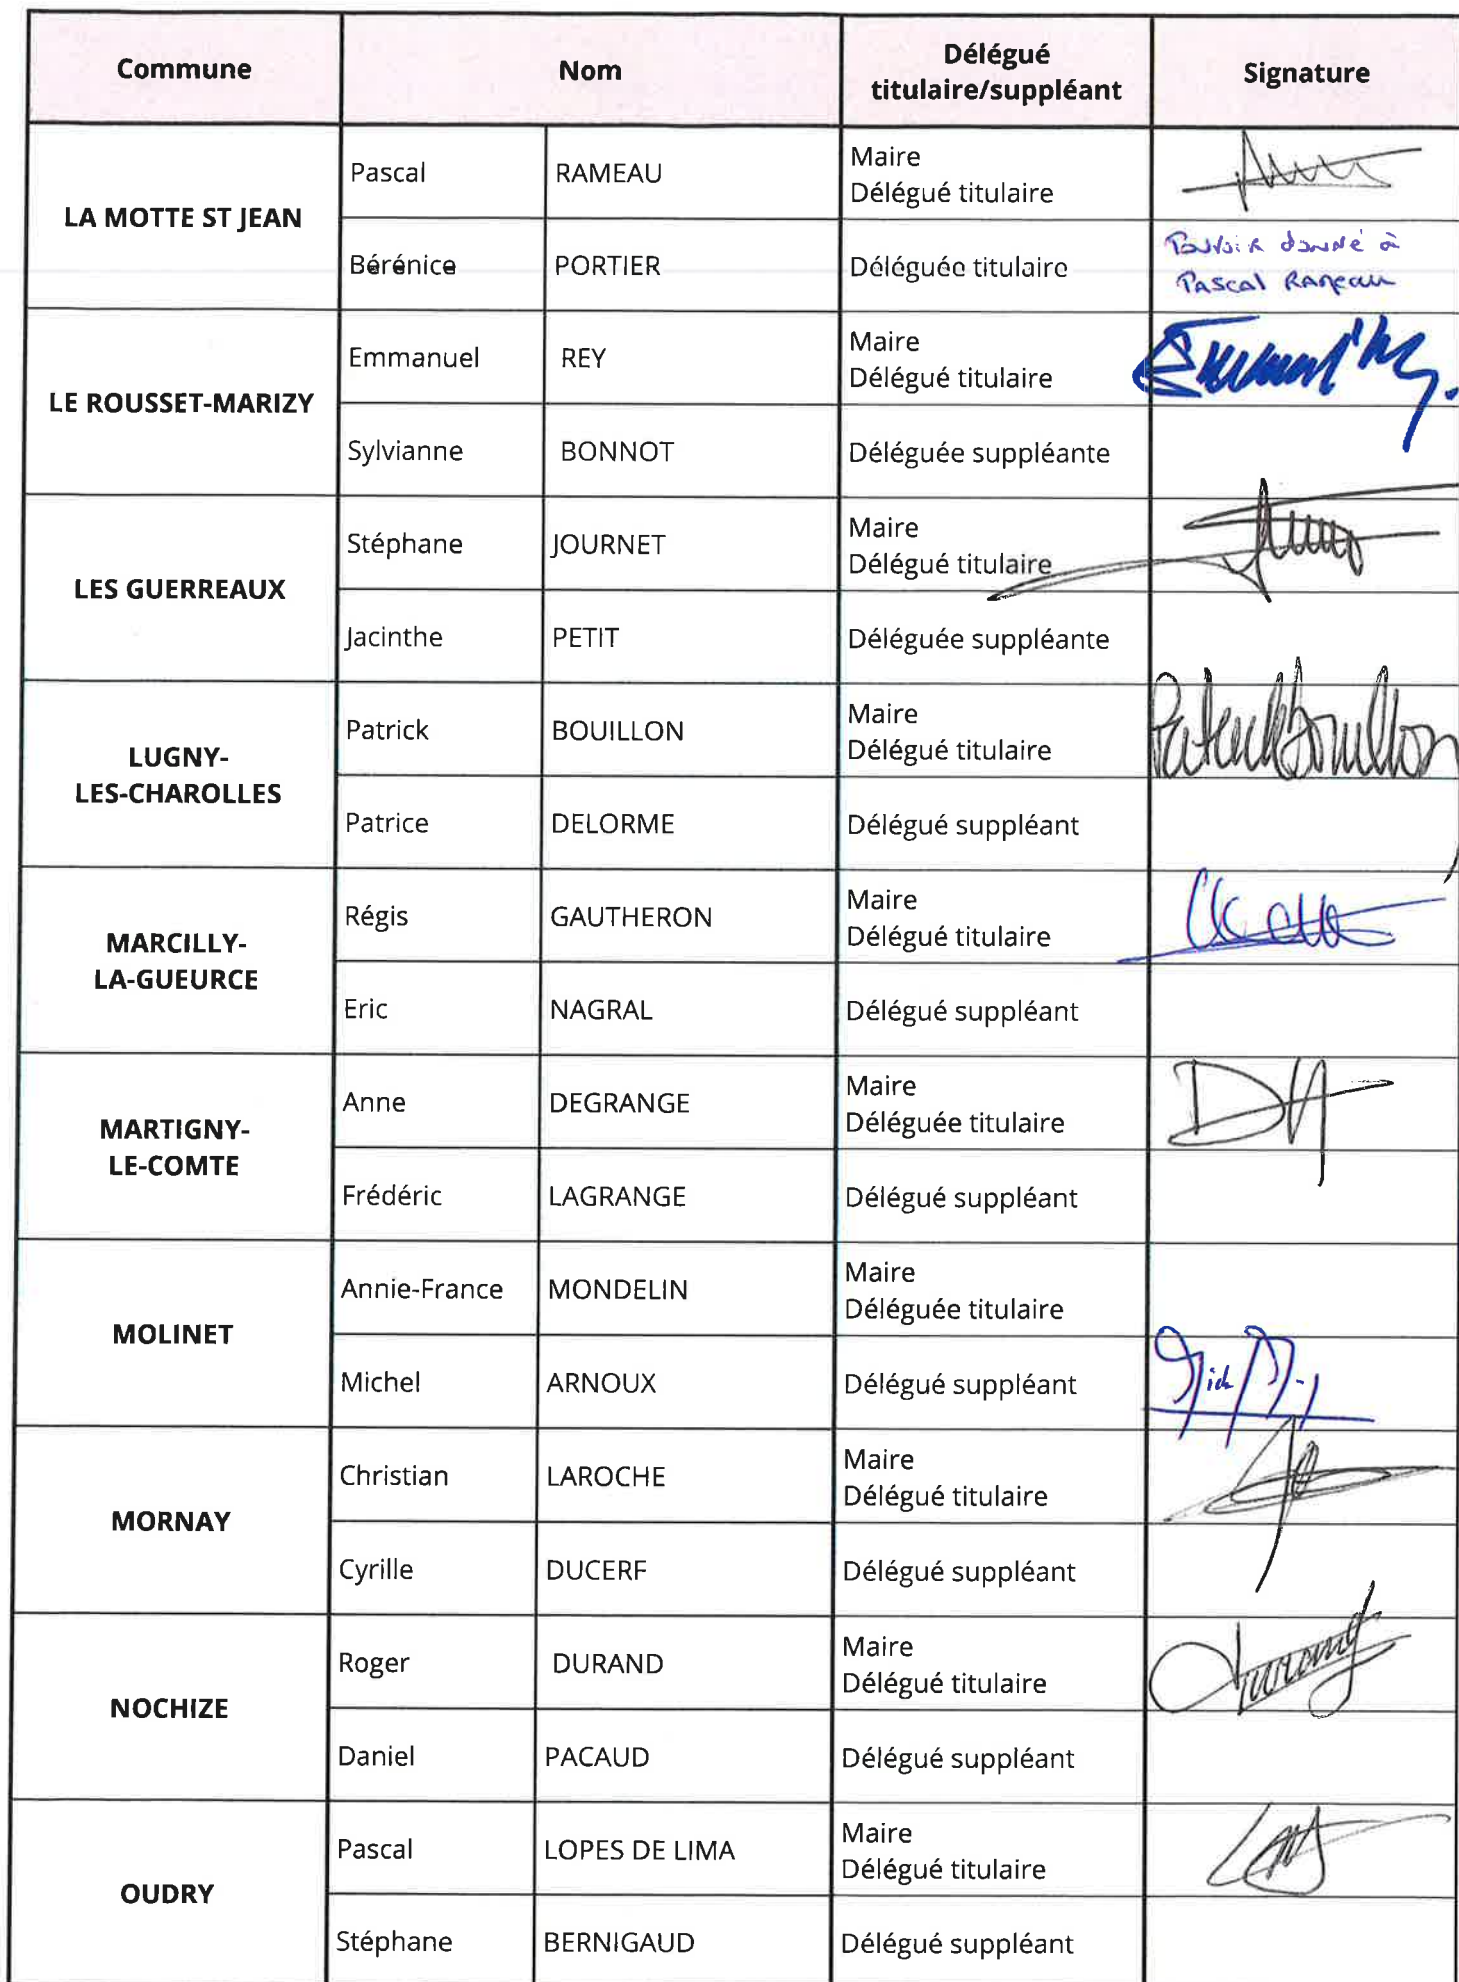 Commune
Nom
Délégué
titulaire/suppléant
Signature
LA MOTTE ST JEAN
Pascal
RAMEAU
Maire
Délégué titulaire
Bérénice
PORTIER
Déléguée titulaire
Pouvoir donné à
Pascal Rameau
LE ROUSSET-MARIZY
Emmanuel
REY
Maire
Délégué titulaire
Sylvianne
BONNOT
Déléguée suppléante
LES GUERREAUX
Stéphane
JOURNET
Maire
Délégué titulaire
Jacinthe
PETIT
Déléguée suppléante
LUGNY-
LES-CHAROLLES
Patrick
BOUILLON
Maire
Délégué titulaire
Patrick Bouillon
Patrice
DELORME
Délégué suppléant
MARCILLY-
LA-GUEURCE
Régis
GAUTHERON
Maire
Délégué titulaire
Eric
NAGRAL
Délégué suppléant
MARTIGNY-
LE-COMTE
Anne
DEGRANGE
Maire
Déléguée titulaire
Frédéric
LAGRANGE
Délégué suppléant
MOLINET
Annie-France
MONDELIN
Maire
Déléguée titulaire
Michel
ARNOUX
Délégué suppléant
MORNAY
Christian
LAROCHE
Maire
Délégué titulaire
Cyrille
DUCERF
Délégué suppléant
NOCHIZE
Roger
DURAND
Maire
Délégué titulaire
Daniel
PACAUD
Délégué suppléant
OUDRY
Pascal
LOPES DE LIMA
Maire
Délégué titulaire
Stéphane
BERNIGAUD
Délégué suppléant